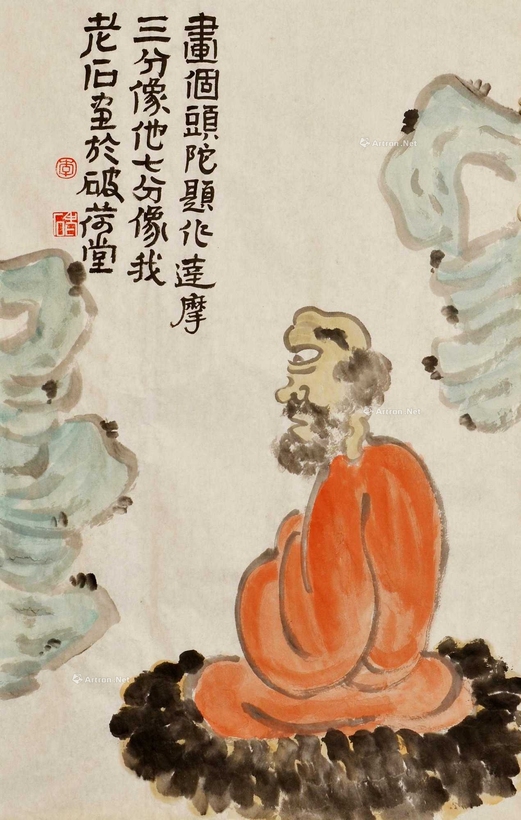 畫個頭陀題作達摩
三分像他七分像我
老石畫於破荷堂
李
Artron.Net
Artron.Net
Artron.Net